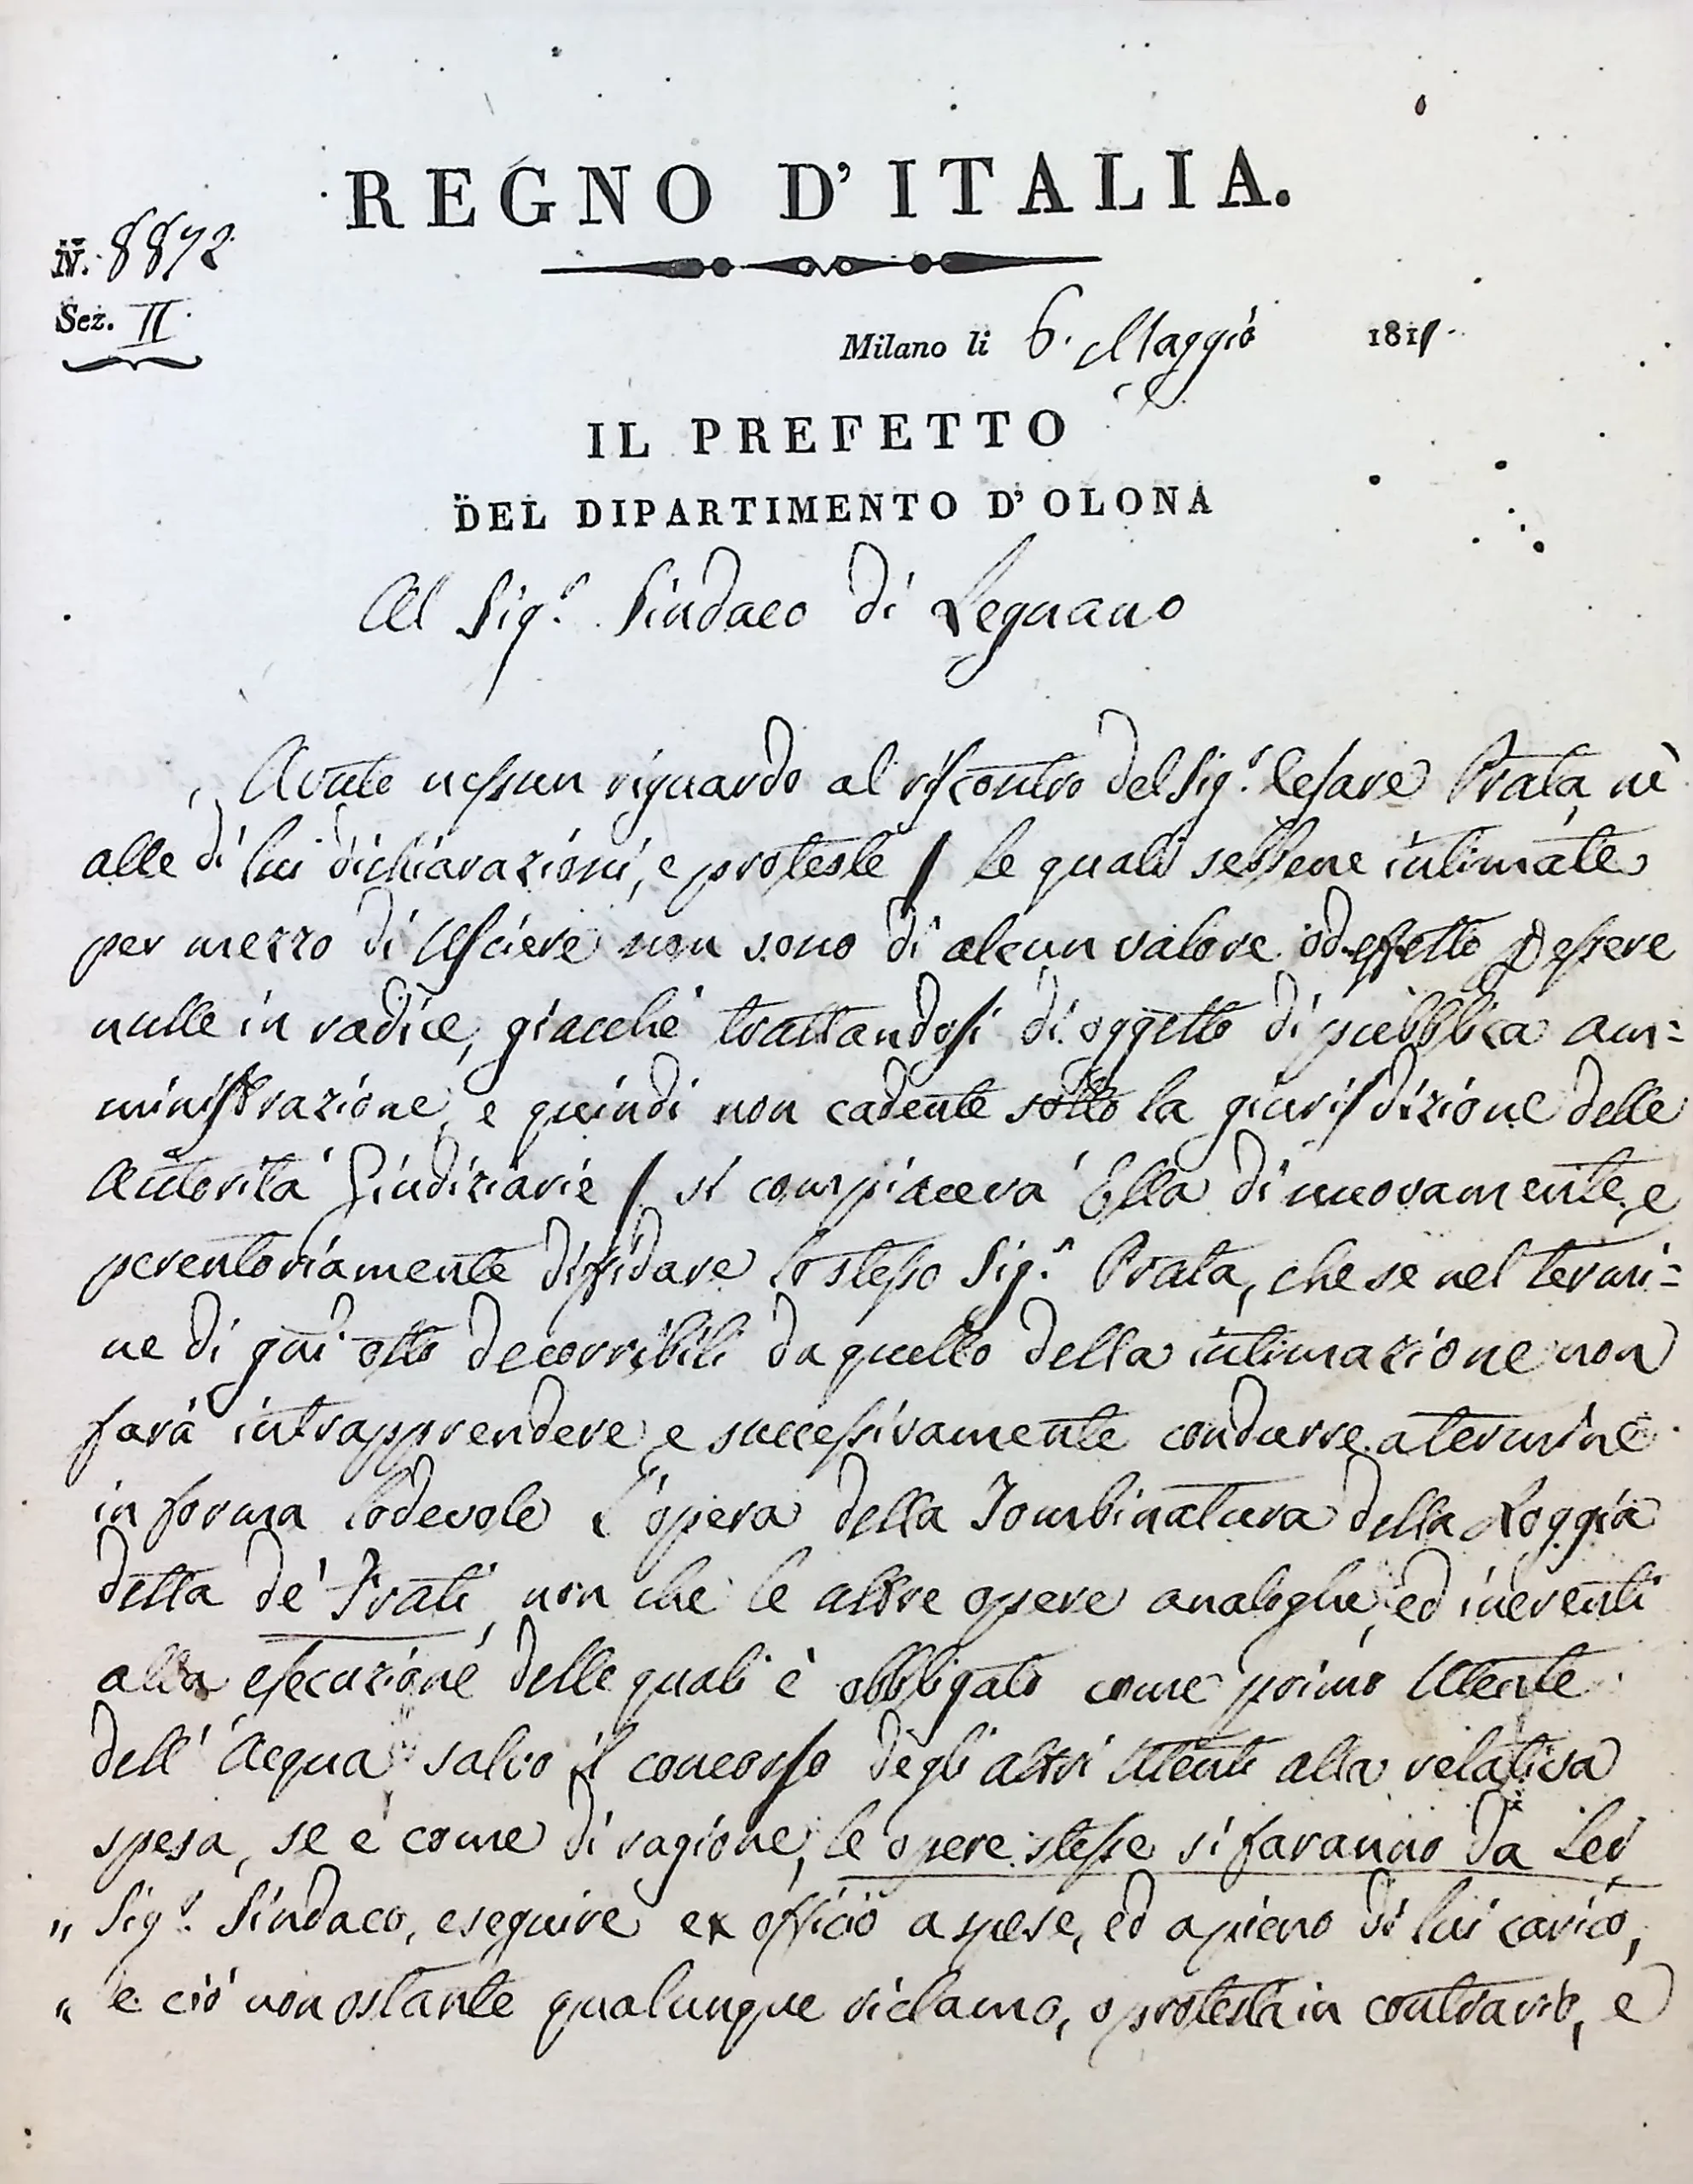 REGNO D'ITALIA.
N. 8872
Sez. II.
Milano li 6. Maggio 1811.
IL PREFETTO
DEL DIPARTIMENTO D'OLONA
Al Sig.r Sindaco di Legnano
Avuto nessun riguardo al riscontro del Sig.r Cesare Prata, nè
alle di lui dichiarazioni, e proteste / le quali sebbene intimate
per mezzo di Usciere non sono di alcun valore od effetto p essere
nulle in radice, giacchè trattandosi di oggetto di pubblica am=
ministrazione, e quindi non cadente sotto la giurisdizione delle
Autorità Giudiziarie / si compiacerà Ella di nuovamente, e
perentoriamente diffidare lo stesso Sig.r Prata, che se nel termi=
ne di gni otto decorribili da quello della intimazione non
farà intrapprendere, e successivamente condurre a termine
in forma lodevole l'opera della Tombinatura della Roggia
detta de' Frati, non che le altre opere analoghe, ed inerenti
alla esecuzione delle quali è obbligato come primo Utente
dell'Acqua salvo il concorso degli altri Utenti alla relativa
spesa, se è come di ragione, le opere stesse si faranno da Lei
" Sig.r Sindaco, eseguire ex officio a spese, ed a pieno di lui carico,
" e ciò non ostante qualunque riclamo, o protesta in contrario, e